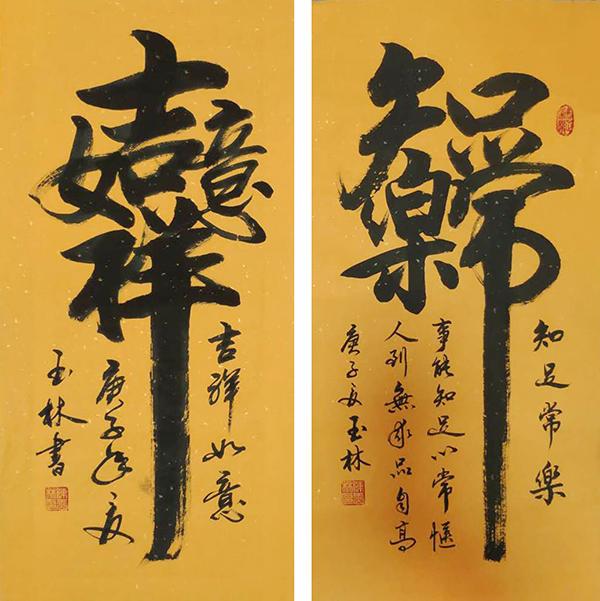 吉祥如意
吉祥如意
庚子年夏
玉林書
知足常樂
知足常樂
事能知足心常愜
人到無求品自高
庚子夏玉林